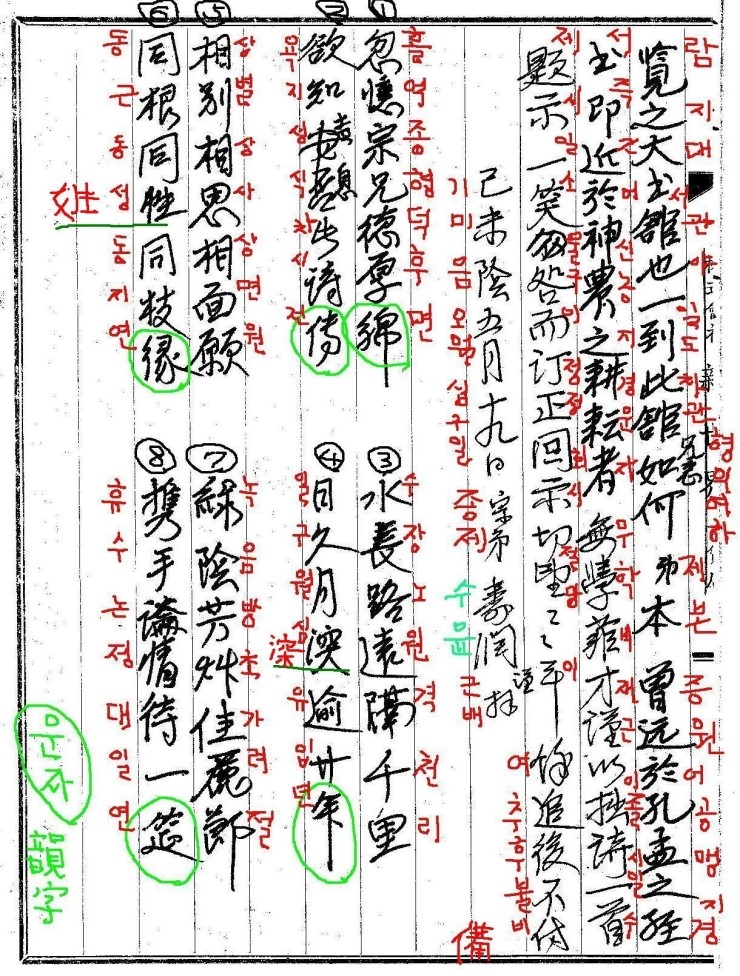 覽之大書舘也一到此舘 兄意 如何 弟本 曾远於孔孟之経
람지대 서관야일도차관 형의여하 제본 증원어공맹지경
書即近於神農之耕耘者 無學菲才謹以拙詩一首
서즉근어신농지경운자 무학비재근이졸시일수
題示一笑勿咎而訂正回示切望〻〻耳 餘追後不備
제시일소물구이정정회시절망이 여추후불비
備
己未陰五月十九日 宗弟 壽潤 謹拜
기미음오월십구일 종제 수윤 근배
① 忽憶宗兄德厚綿
홀억종형덕후면
② 欲知 喜息 出詩傳
욕지성식차시전
③ 水長路遠隔千里
수장노원격천리
④ 日久月深逾廿年
일구월심유입년
深
⑤ 相別相思相面願
상별상사상면원
⑥ 同根同姓同枝緣
동근동성동지연
姓
⑦ 綠陰芳艸佳麗節
녹음방초가려절
⑧ 携手論情待一筵
휴수논정대일연
운자
韻字